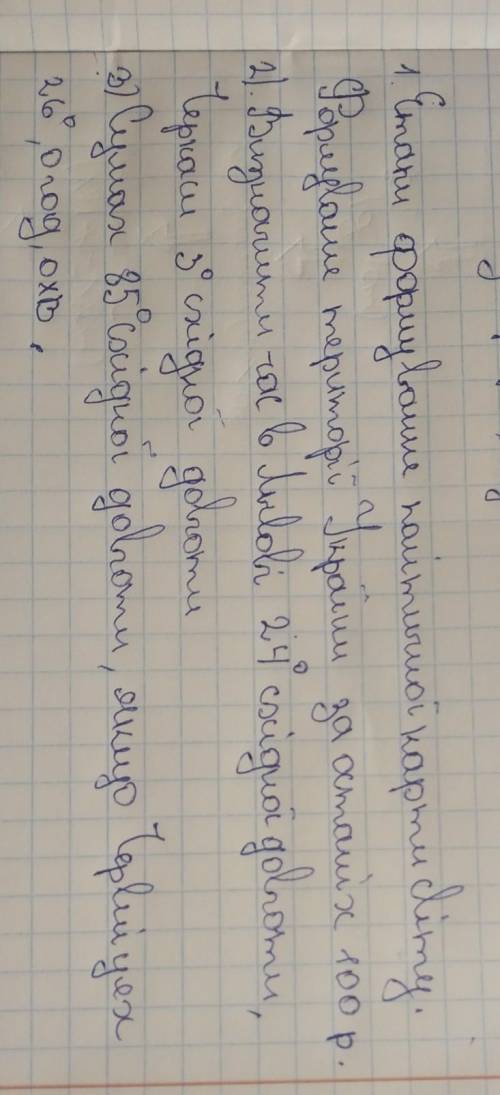 1. Етапи формування політичної карти світу.
Формування територій України за останіх 100 р.
2). Визначити час в Львові 24° східної довготи,
Черкаси 3° східної довготи
3) Сумах 35° східної довготи, якщо Чернівцях
26°, 0 год, 0 хв.